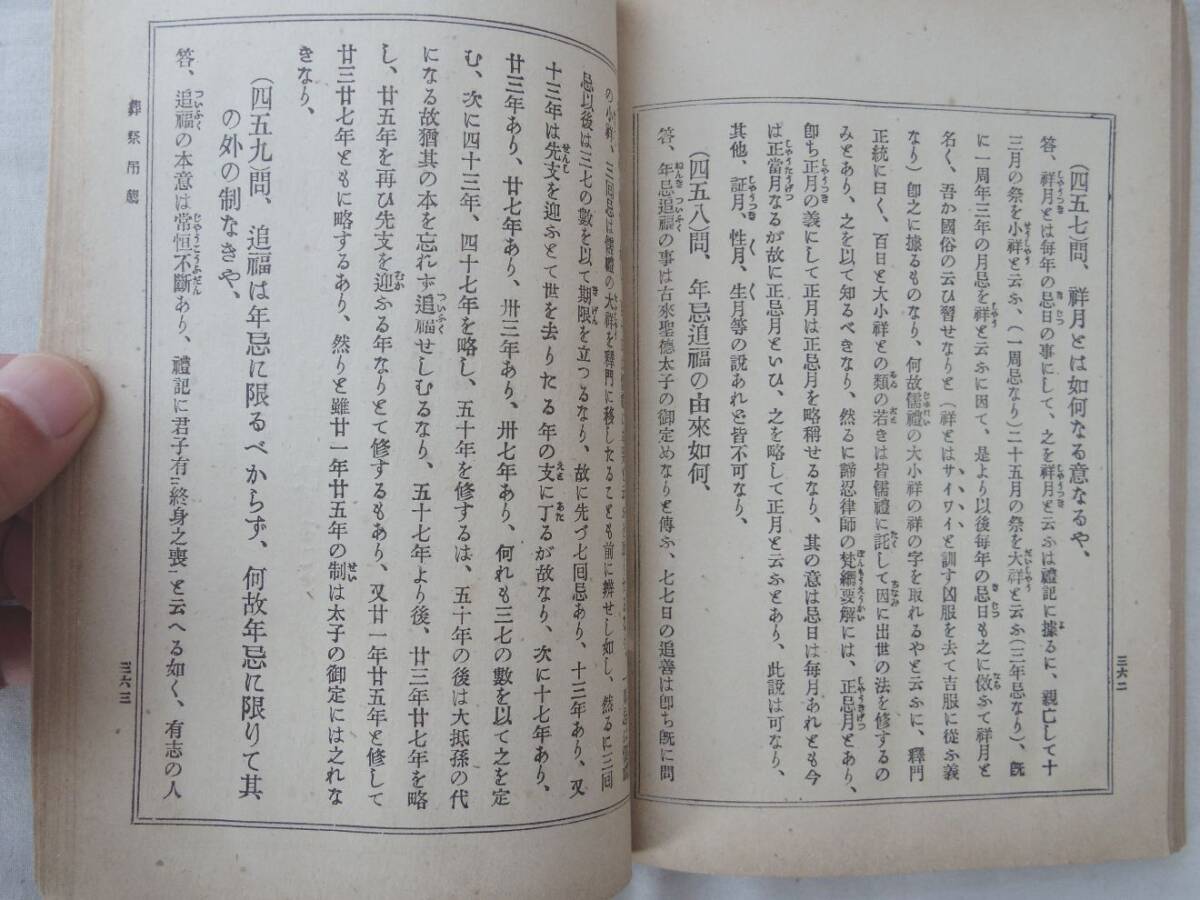 (四五七)問、祥月とは如何なる意なるや、
答、祥月とは毎年の忌日の事にして、之を祥月と云ふは禮記に據るに、親亡して十
三月の祭を小祥と云ふ、(一周忌なり)二十五月の祭を大祥と云ふ(三年忌なり)、旣
に一周年三年の月忌を祥と云ふに因て、是より以後毎年の忌日も之に傚ふて祥月と
名く、吾か國俗の云ひ習せなりと(祥とはサイワイと訓す凶服を去て吉服に從ふ義
なり)卽之に據るものなり、何故儒禮の大小祥の祥の字を取れるやと云ふに、釋門
正統に曰く、百日と大小祥との類の若きは皆儒禮に託して因に出世の法を修するの
みとあり、之を以て知るべきなり、然るに諦忍律師の梵網要解には、正忌月とあり、
卽ち正月の義にして正月は正忌月を略稱せるなり、其の意は忌日は毎月あれとも今
は正當月なるが故に正忌月といひ、之を略して正月と云ふとあり、此說は可なり、
其他、証月、性月、生月等の說あれど皆不可なり、
(四五八)問、年忌追福の由來如何、
答、年忌追福の事は古來聖德太子の御定めなりと傳ふ、七七日の追善は卽ち旣に問
三六二
の小祥、三回忌は儒禮の大祥を釋門に移したることも前に辨せし如し、然るに三回
忌以後は三七の數を以て期限を立つるなり、故に先づ七回忌あり、十三年あり、又
十三年は先支を迎ふとて世を去りたる年の支に丁るが故なり、次に十七年あり、
廿三年あり、廿七年あり、卅三年あり、卅七年あり、何れも三七の數を以て之を定
む、次に四十三年、四十七年を略し、五十年を修するは、五十年の後は大抵孫の代
になる故猶其の本を忘れず追福せしむるなり、五十七年より後、廿三年廿七年を略
し、廿五年を再び先支を迎ふる年なりとて修するもあり、又廿一年廿五年と修して
廿三廿七年ともに略するあり、然りと雖廿一年廿五年の制は太子の御定には之れな
きなり、
(四五九)問、追福は年忌に限るべからず、何故年忌に限りて其
の外の制なきや、
答、追福の本意は常恒不斷あり、禮記に君子有三終身之喪一と云へる如く、有志の人
葬祭吊魂
三六三